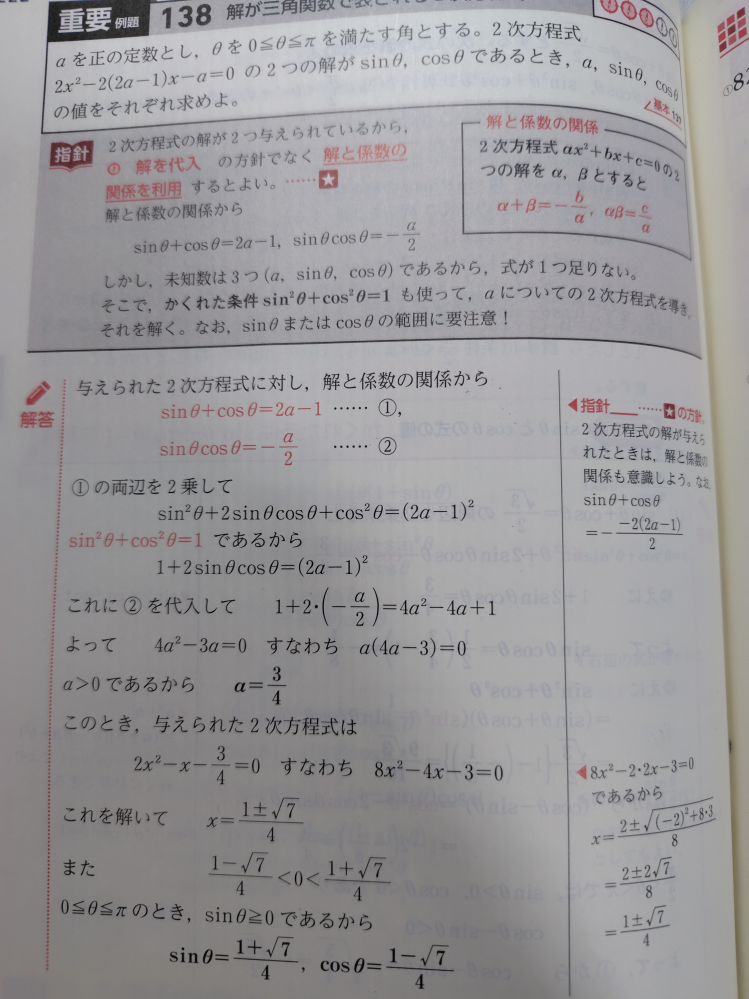 重要 例題 138 解が三角関数で表される
aを正の定数とし，θを0≦θ≦πを満たす角とする。2次方程式
2x²−2(2a−1)x−a=0 の2つの解が sinθ，cosθ であるとき，a，sinθ，cosθ
の値をそれぞれ求めよ。
基本 137
指針 2次方程式の解が2つ与えられているから，
解を代入 の方針でなく 解と係数の
関係を利用 するとよい。……★
解と係数の関係から
sinθ+cosθ=2a−1, sinθcosθ=−a/2
解と係数の関係
2次方程式 ax²+bx+c=0の2
つの解を α，β とすると
α+β=−b/a, αβ=c/a
しかし，未知数は3つ(a，sinθ，cosθ)であるから，式が1つ足りない。
そこで，かくれた条件 sin²θ+cos²θ=1 も使って，aについての2次方程式を導き，
それを解く。なお，sinθまたはcosθの範囲に要注意！
解答
与えられた2次方程式に対し，解と係数の関係から
sinθ+cosθ=2a−1 …… ①，
sinθcosθ=−a/2 …… ②
①の両辺を2乗して
sin²θ+2sinθcosθ+cos²θ=(2a−1)²
sin²θ+cos²θ=1 であるから
1+2sinθcosθ=(2a−1)²
これに②を代入して 1+2・(−a/2)=4a²−4a+1
よって 4a²−3a=0 すなわち a(4a−3)=0
a>0であるから a=3/4
このとき，与えられた2次方程式は
2x²−x−3/4=0 すなわち 8x²−4x−3=0
これを解いて x=(1±√7)/4
また (1−√7)/4<0<(1+√7)/4
0≦θ≦πのとき，sinθ≧0であるから
sinθ=(1+√7)/4, cosθ=(1−√7)/4
◀指針___……★の方針。
2次方程式の解が与えら
れたときは，解と係数の
関係も意識しよう。なお，
sinθ+cosθ
=−(−2(2a−1))/2
◀8x²−2・2x−3=0
であるから
x=(2±√((−2)²+8・3))/8
=(2±2√7)/8
=(1±√7)/4